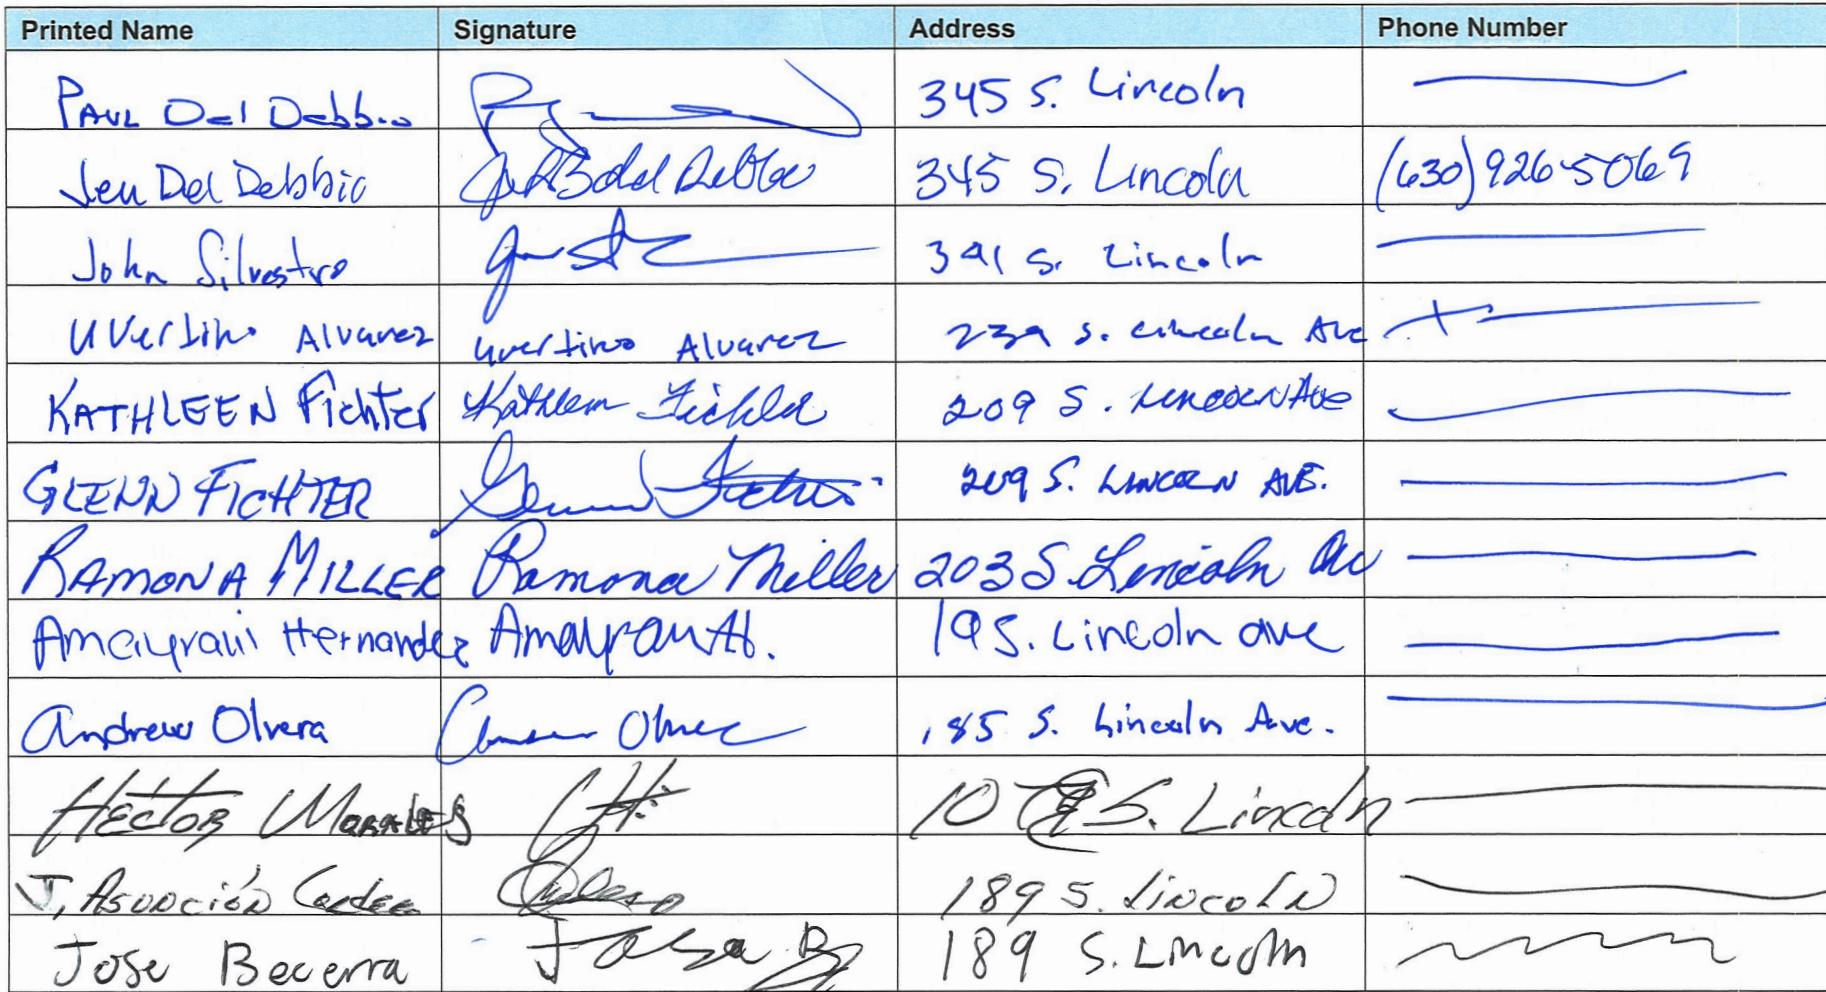 Printed Name Signature Address Phone Number
PAUL Del Debbio 345 S. Lincoln
Jen Del Debbio Jen B del Debbio 345 S. Lincoln (630) 926-5069
John Silvestro 341 S. Lincoln
Uvertino Alvarez uvertino Alvarez 239 S. Lincoln Ave
KATHLEEN Fichter Kathleen Fichter 209 S. LINCOLN AVE
GLENN FICHTER Glenn Fichter 209 S. LINCOLN AVE.
RAMONA MILLER Ramona Miller 203 S. Lincoln Av
Amayrani Hernandez Amayrani H. 19 S. Lincoln ave
Andrew Olvera 185 S. Lincoln Ave.
HECTOR MORALES S. Lincoln
J, Asunción 189 S. Lincoln
Jose Becerra Jose B 189 S. Lincoln